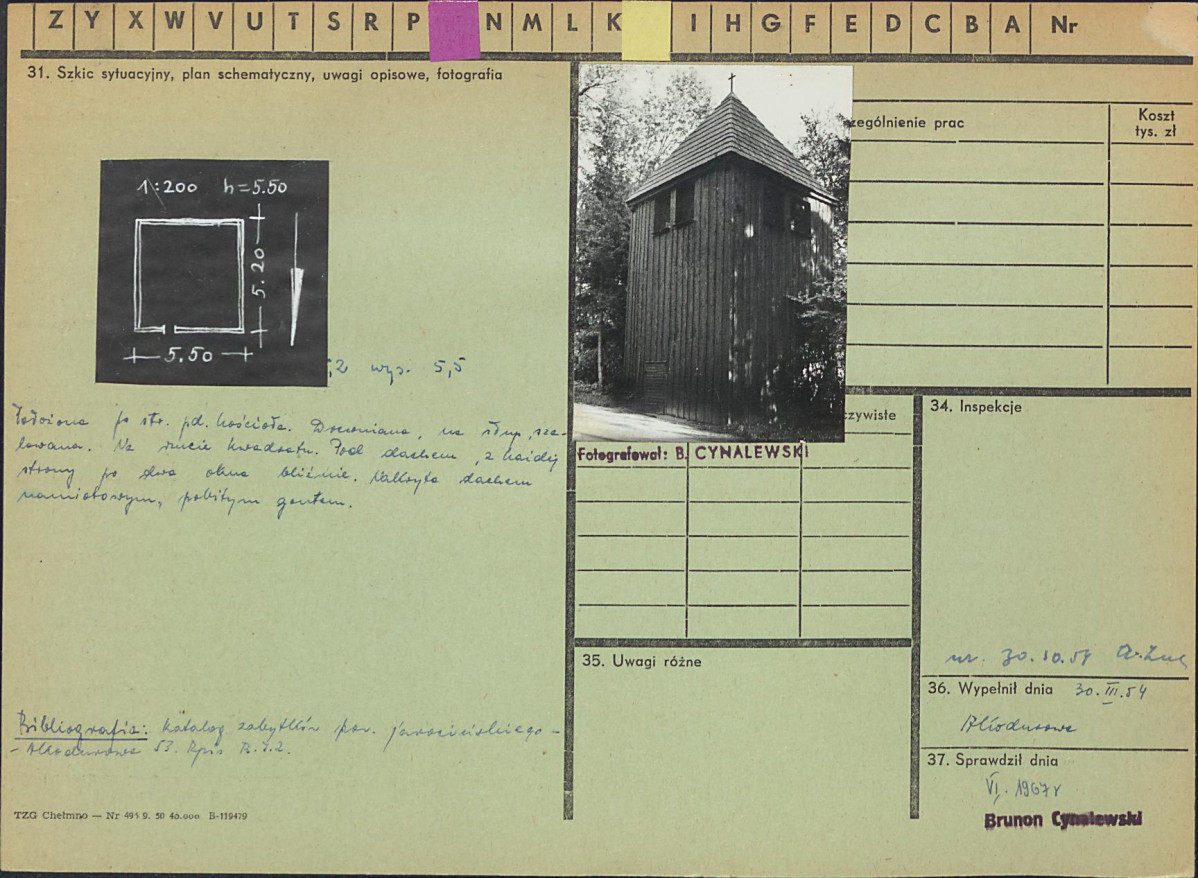 Z Y X W V U T S R P N M L K I H G F E D C B A Nr
31. Szkic sytuacyjny, plan schematyczny, uwagi opisowe, fotografia
1:200 h=5.50
5.20
5.50
,2 wys. 5,5
Położona po str. pd. kościoła. Drewniana, na słup, sza-
lowana. Na rzucie kwadratu. Pod dachem, z każdej
strony po dwa okna bliźnie. Nakryta dachem
namiotowym, pobitym gontem.
Bibliografia: Katalog zabytków pow. jarocińskiego -
53.
TZG Chełmno — Nr 495 9. 50 40.000 B-119479
zególnienie prac
Koszt
tys. zł
zywiste
Fotografował: B. CYNALEWSKI
35. Uwagi różne
34. Inspekcje
30.10.54
36. Wypełnił dnia 30.III.54
37. Sprawdził dnia
VI. 1967 r
Brunon Cynalewski